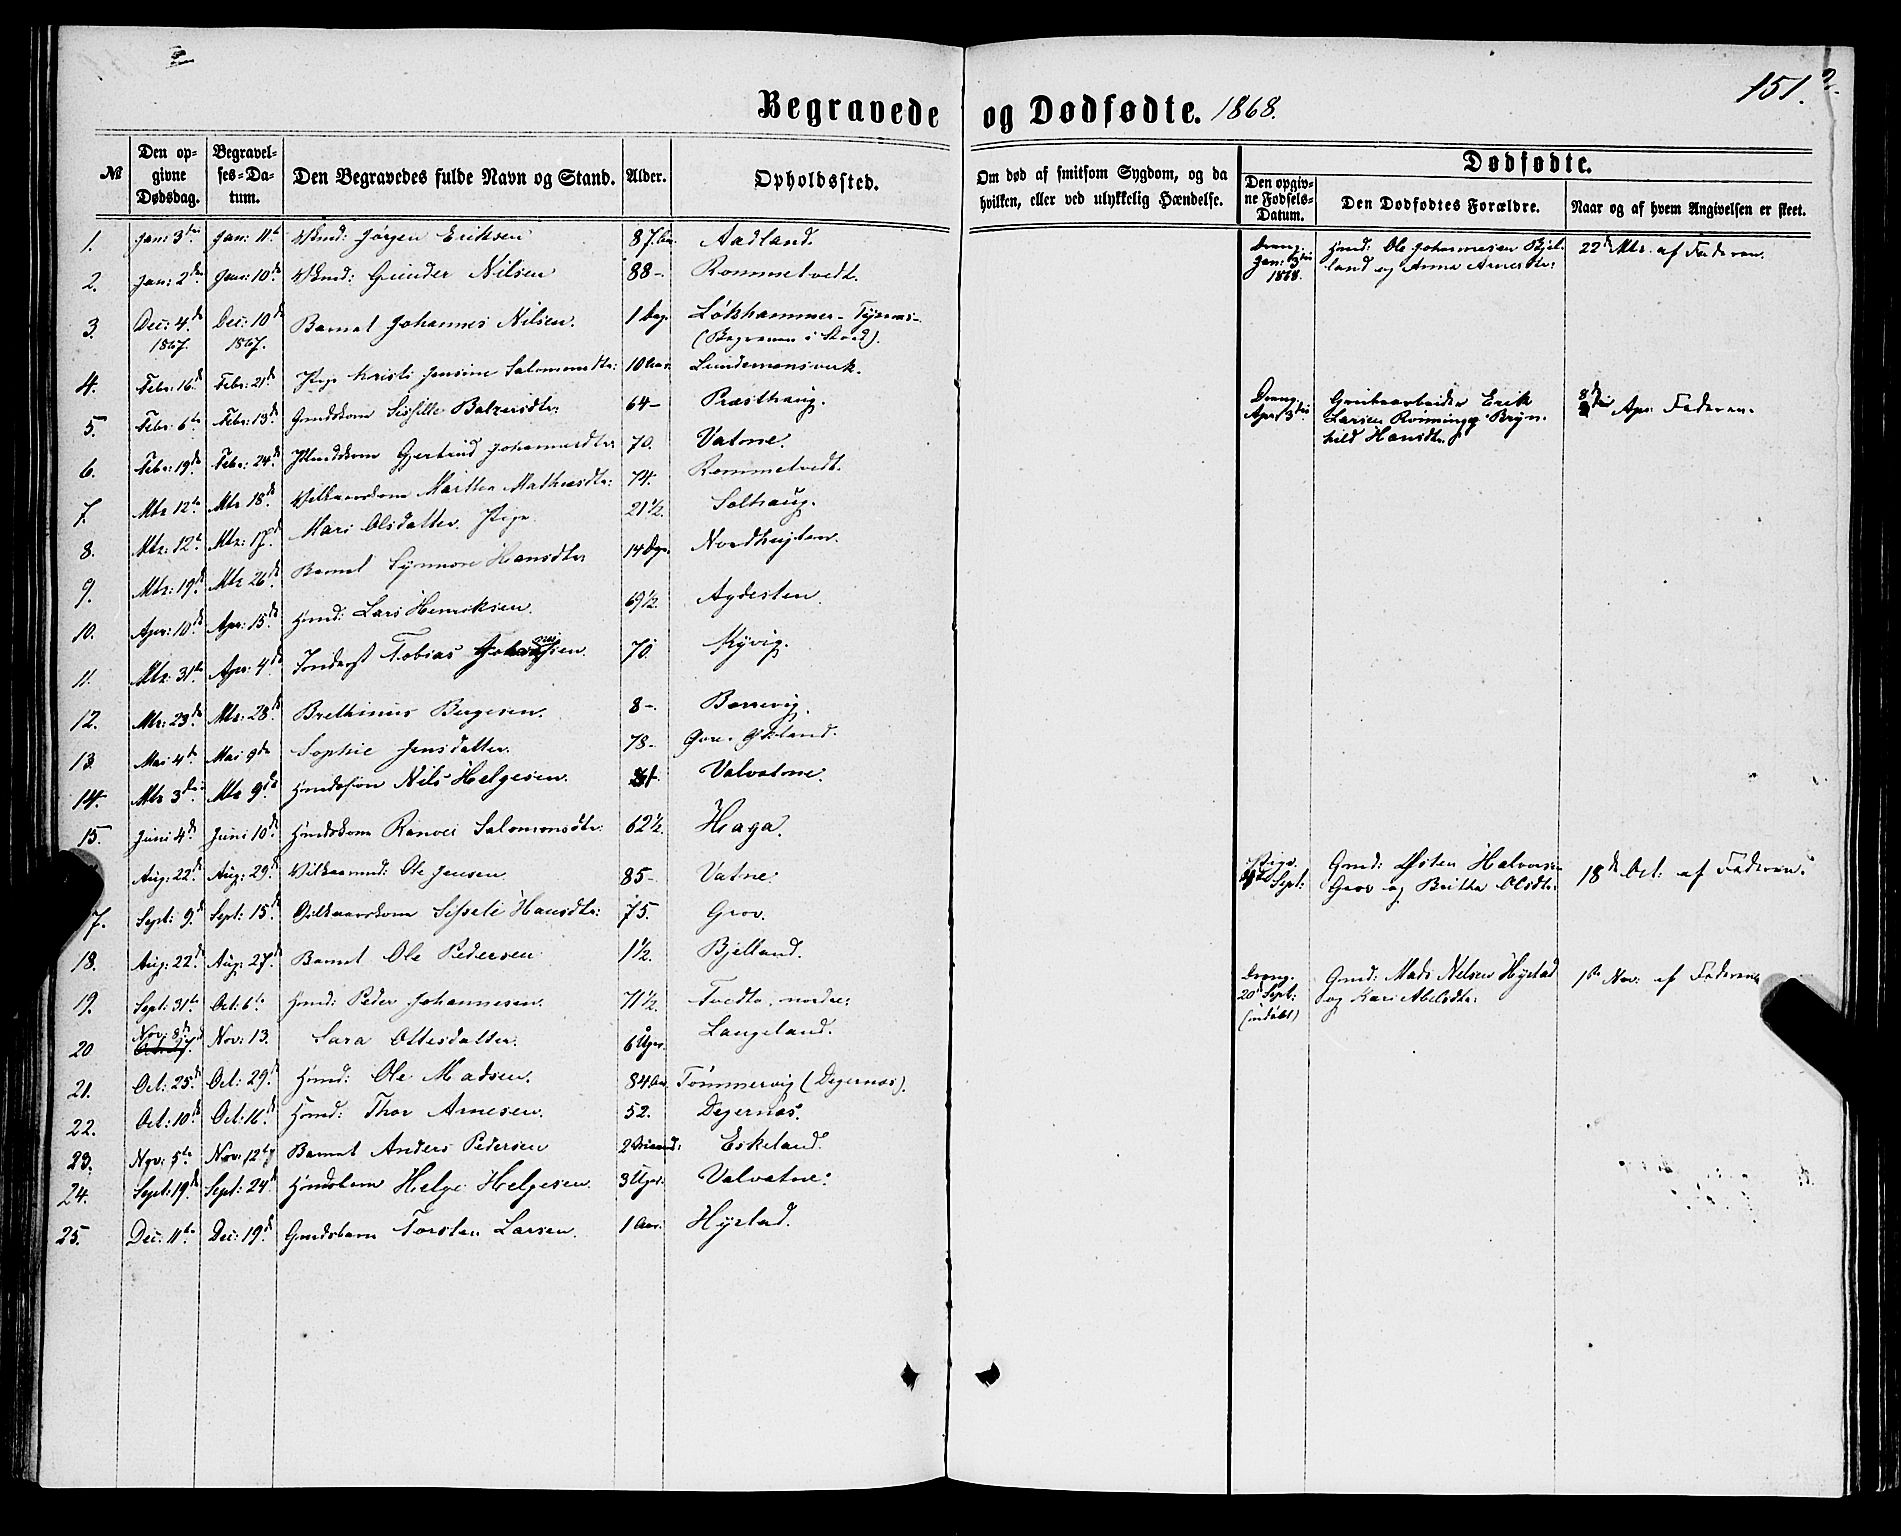 151.
Begravede og Dødfødte. 1868.
№
Den opgivne Dødsdag.
Begravelses-Datum.
Den Begravedes fulde Navn og Stand.
Alder.
Opholdssted.
Om død af smitsom Sygdom, og da hvilken, eller ved ulykkelig Hændelse.
Dødfødte.
Den opgivne Fødsels-Datum.
Den Dødfødtes Forældre.
Naar og af hvem Angivelsen er skeet.
1. Jan: 3die Jan: 11te Jørgen Eriksen 87 Aar Aadland.
2. Jan: 2den Jan: 10de Gunder Nilsen 88- Rommetvedt.
3. Dec: 4de 1867. Dec: 10de 1867. Barnet Johannes Nilsen. 1 Dag. Løkshammer- Tysnæs- (Begraven i Stord).
4. Febr: 16de Febr: 21de Pige Kristi Jensine Salomonsdtr: 10 Aar Lundemansverk.
5. Febr: 6te Febr: 13de Gmdskone Sissille Balzersdtr: 64- Præsthaug.
6. Febr: 19de Febr: 24de Gjertrud Johannesdtr: 70. Vatne.
7. Mts 12te Mts 18de Vilkaarskone Marttha Mathiasdtr: 74. Rommetvedt.
8. Mts: 12te Mts: 17de Mari Olsdatter. Pige. 21½. Solhaug.
9. Mts: 19de Mts 26de Barnet Synnove Hansdtr 14 Dage Nordhuglen.
10. Apr: 10de Apr: 15de Hmd: Lars Henriksen. 69½. Agdesten.
11. Mts: 31te Apr: 4de Inderst Tobias 70. Kyvig.
12. Mts: 23de Mts: 28de Brethinus Bergesen. 8-. Borrevig.
13. Mai 4de Mai 9de Sophie Jensdatter. 78- Økland.
14. Mts 3die Mts 9de Hmdssøn Nils Helgesen. Valvatne.
15. Juni 4de Juni 10de Hmdskone Ranvei Salomonsdtr: 62½. Haga.
Aug: 22de Aug: 29de Vilkaarmd: Ole Jensen 85- Vatne.
7. Sept: 9de Sept: 15de Vilkaarskone Sissele Hansdtr: 75. Grov.
18. Aug: 22de Aug: 27de Barnet Ole Pedersen 1½. Bjelland.
19. Sept: 31te Oct: 6te Hmd: Peder Johannesen. 71½. Tvedte, nordre:
20 Nov: 8de Nov: 13. Sara Ottesdatter. 6 Uger Langeland.
21. Oct: 25de Oct: 29de Hmd: Ole Madsen. 84 Aar Tømmervig (Degernæs).
22. Oct: 10de Oct: 16de Hmd: Thor Arnesen. 52. Degernæs.
23. Nov: 5te Nov: 12te Barnet Anders Pedersen 2 Maaned: Eskeland.
24. Sept: 19de Sept: 24de Hmdsbarn Helge Helgesen. 3 Uger. Valvatne:
25. Dec: 11te Dec: 19de Gmdsbarn Torsten Larsen. 1 Aar. Hystad.
Dreng. Jan: 3die 1868.
Hmd: Ole Johannesen Bjelland og Anna Arnesdtr:
22de Mts. af Faderen.
Dreng. Apr: 3die
Grubearbeider Erik Larsen Rønning og Brynhild Hansdtr
8de Apr: Faderen.
Pige. Sept:
Gmd: Østen Halvorsen Grov og Britha Olsdtr:
18de Oct: af Faderen.
Dreng. 20de Sept: (indøbt)
Gmd: Mads Nelsen Hystad og Kari Abelsdtr:
1ste Nov: af Faderen